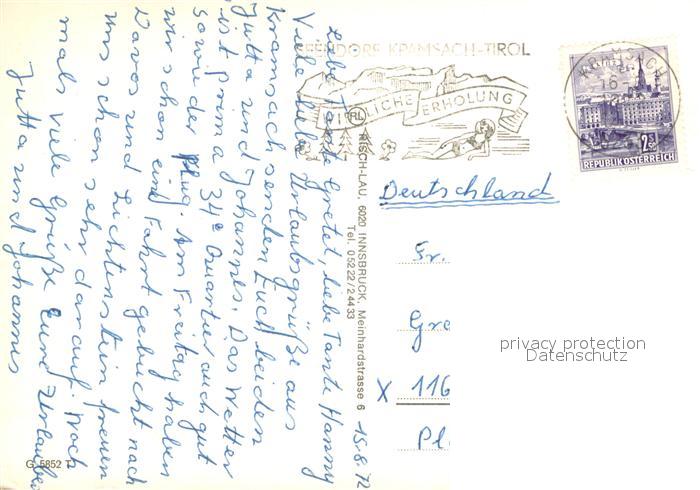 15.8.72
Liebe Tante Gretel, liebe Tante Hanny
Viele liebe Urlaubsgrüße aus
Kramsach senden Euch beiden
Jutta und Johannes. Das Wetter
ist prima 34° Quartier auch gut
sowie der Flug. Am Freitag haben
wir schon eine Fahrt gebucht nach
Davos und Lichtenstein freuen
uns schon sehr darauf. Noch
mals viele Grüße Eure Urlauber
Jutta und Johannes
SEENDORF KRAMSACH-TIROL
TIROL
ERHOLUNG
KRAMSACH
16
2.50
REPUBLIK ÖSTERREICH
RISCH-LAU, 6020 INNSBRUCK, Meinhardstrasse 6
Tel. 05222/24433
Deutschland
Fr.
Gre
X 116
Pl
privacy protection
Datenschutz
G 5852 T